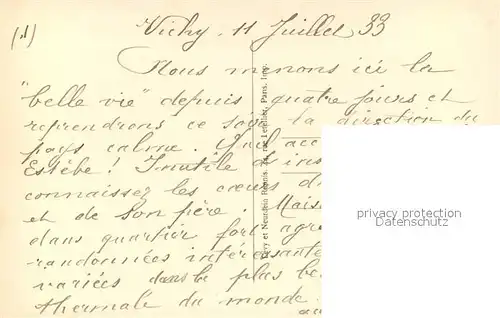 (1)
Vichy, 11 Juillet 33
Nous menons ici la
"belle vie" depuis quatre jours et
reprendrons ce soir la direction du
pays calme. Quel acc
Estèbe! Inutile d'ins
connaissez les cœurs d
et de son père Mais
dans quartier fort agré
randonnées intéressante
variées dans la plus be
thermale du monde.
Lévy et Neurdein Réunis, 44, rue Letellier, Paris, Imp.
privacy protection
Datenschutz